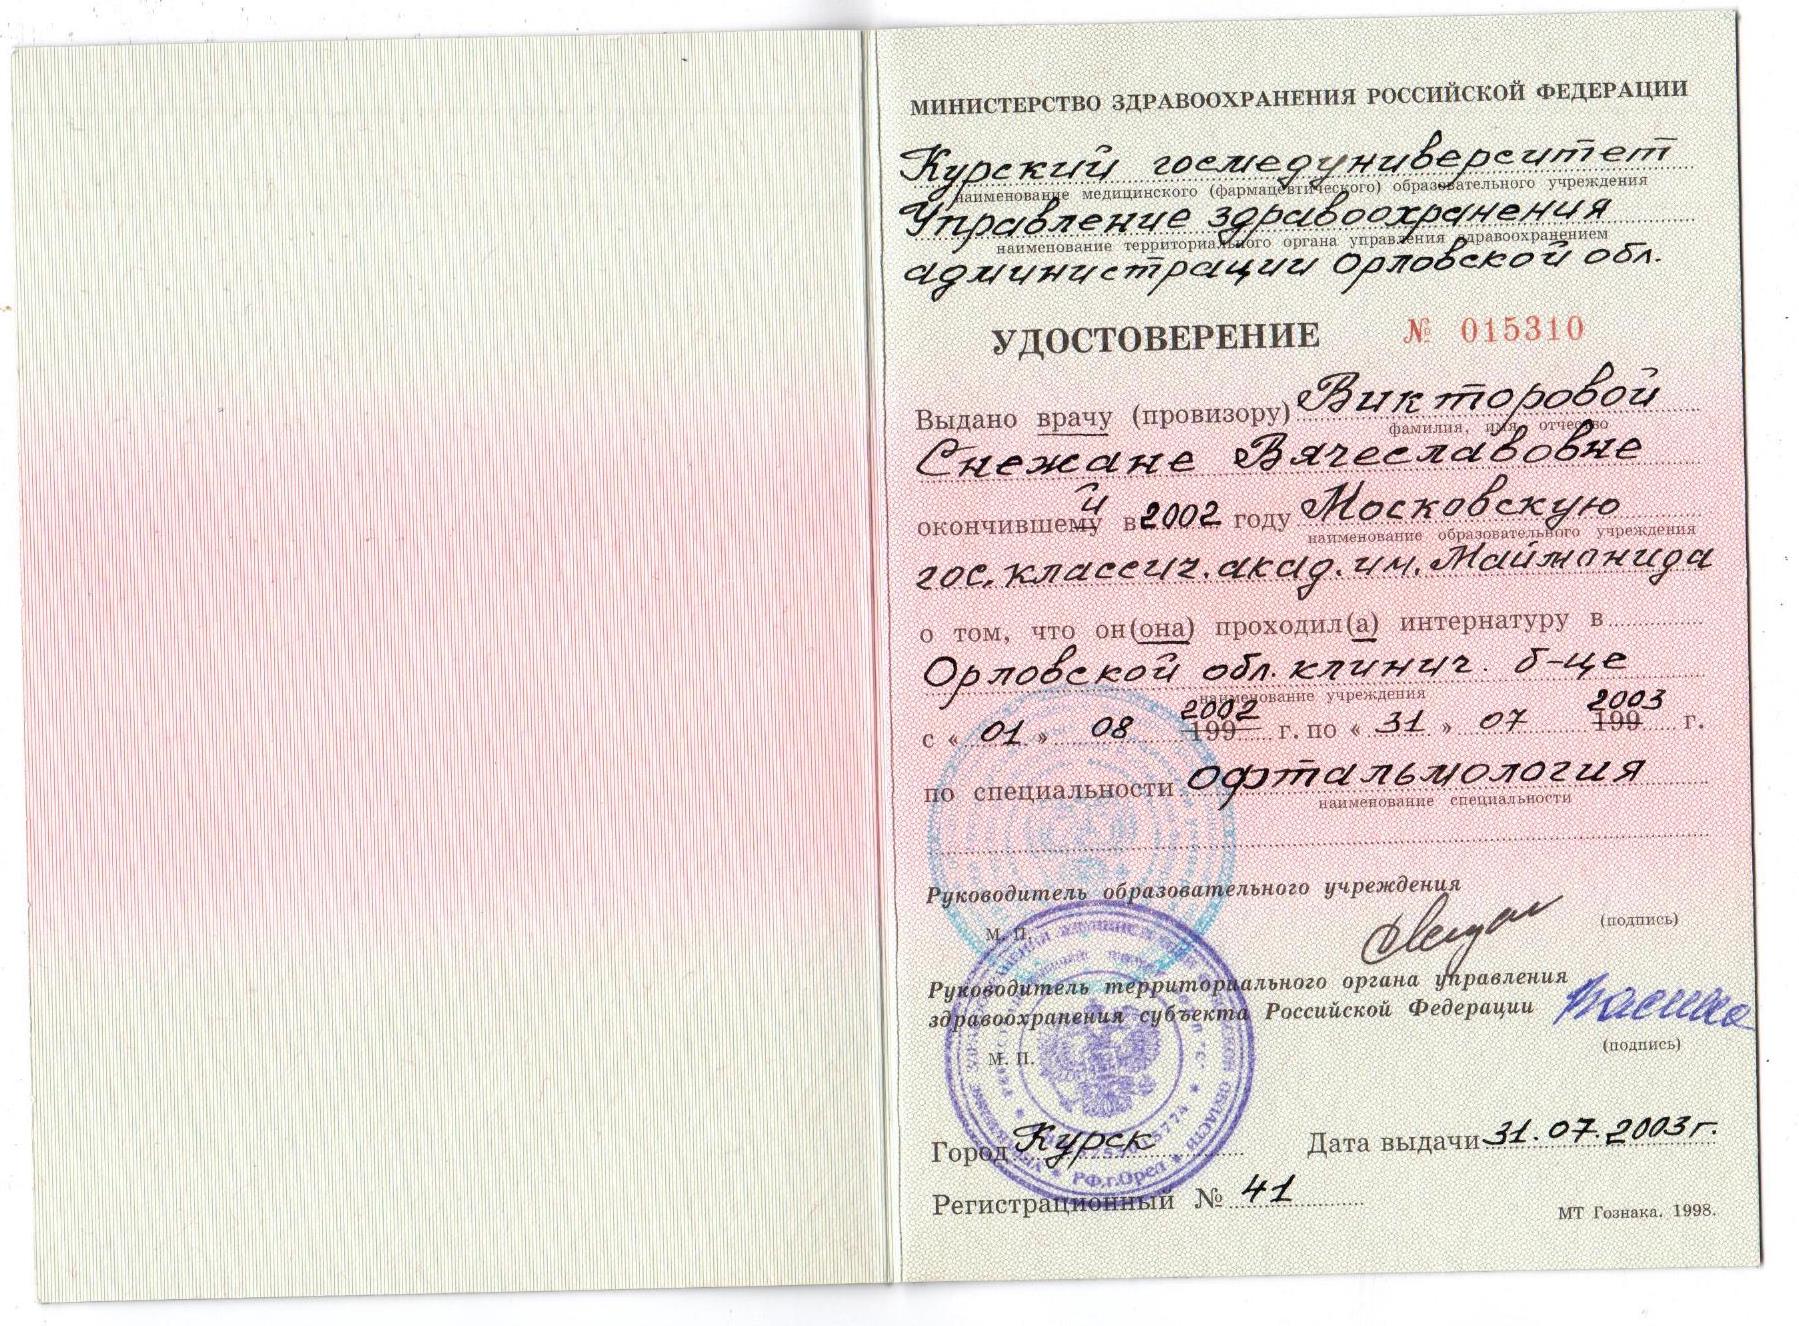 МИНИСТЕРСТВО ЗДРАВООХРАНЕНИЯ РОССИЙСКОЙ ФЕДЕРАЦИИ
Курский госмедуниверситет
наименование медицинского (фармацевтического) образовательного учреждения
Управление здравоохранения
наименование территориального органа управления здравоохранением
администрации Орловской обл.
УДОСТОВЕРЕНИЕ № 015310
Выдано врачу (провизору) Викторовой
фамилия, имя, отчество
Снежане Вячеславовне
й
окончившему в 2002 году Московскую
наименование образовательного учреждения
гос. классич. акад. им. Маймонида
о том, что он(она) проходил(а) интернатуру в
Орловской обл. клинич. б-це
наименование учреждения
2002 2003
с « 01 » 08 199 г. по « 31 » 07 199 г.
по специальности офтальмология
наименование специальности
Руководитель образовательного учреждения
(подпись)
М. П.
Руководитель территориального органа управления
здравоохранения субъекта Российской Федерации
(подпись)
М. П.
РФ.г.Орел
Город Курск Дата выдачи 31.07.2003г.
Регистрационный № 41
МТ Гознака. 1998.